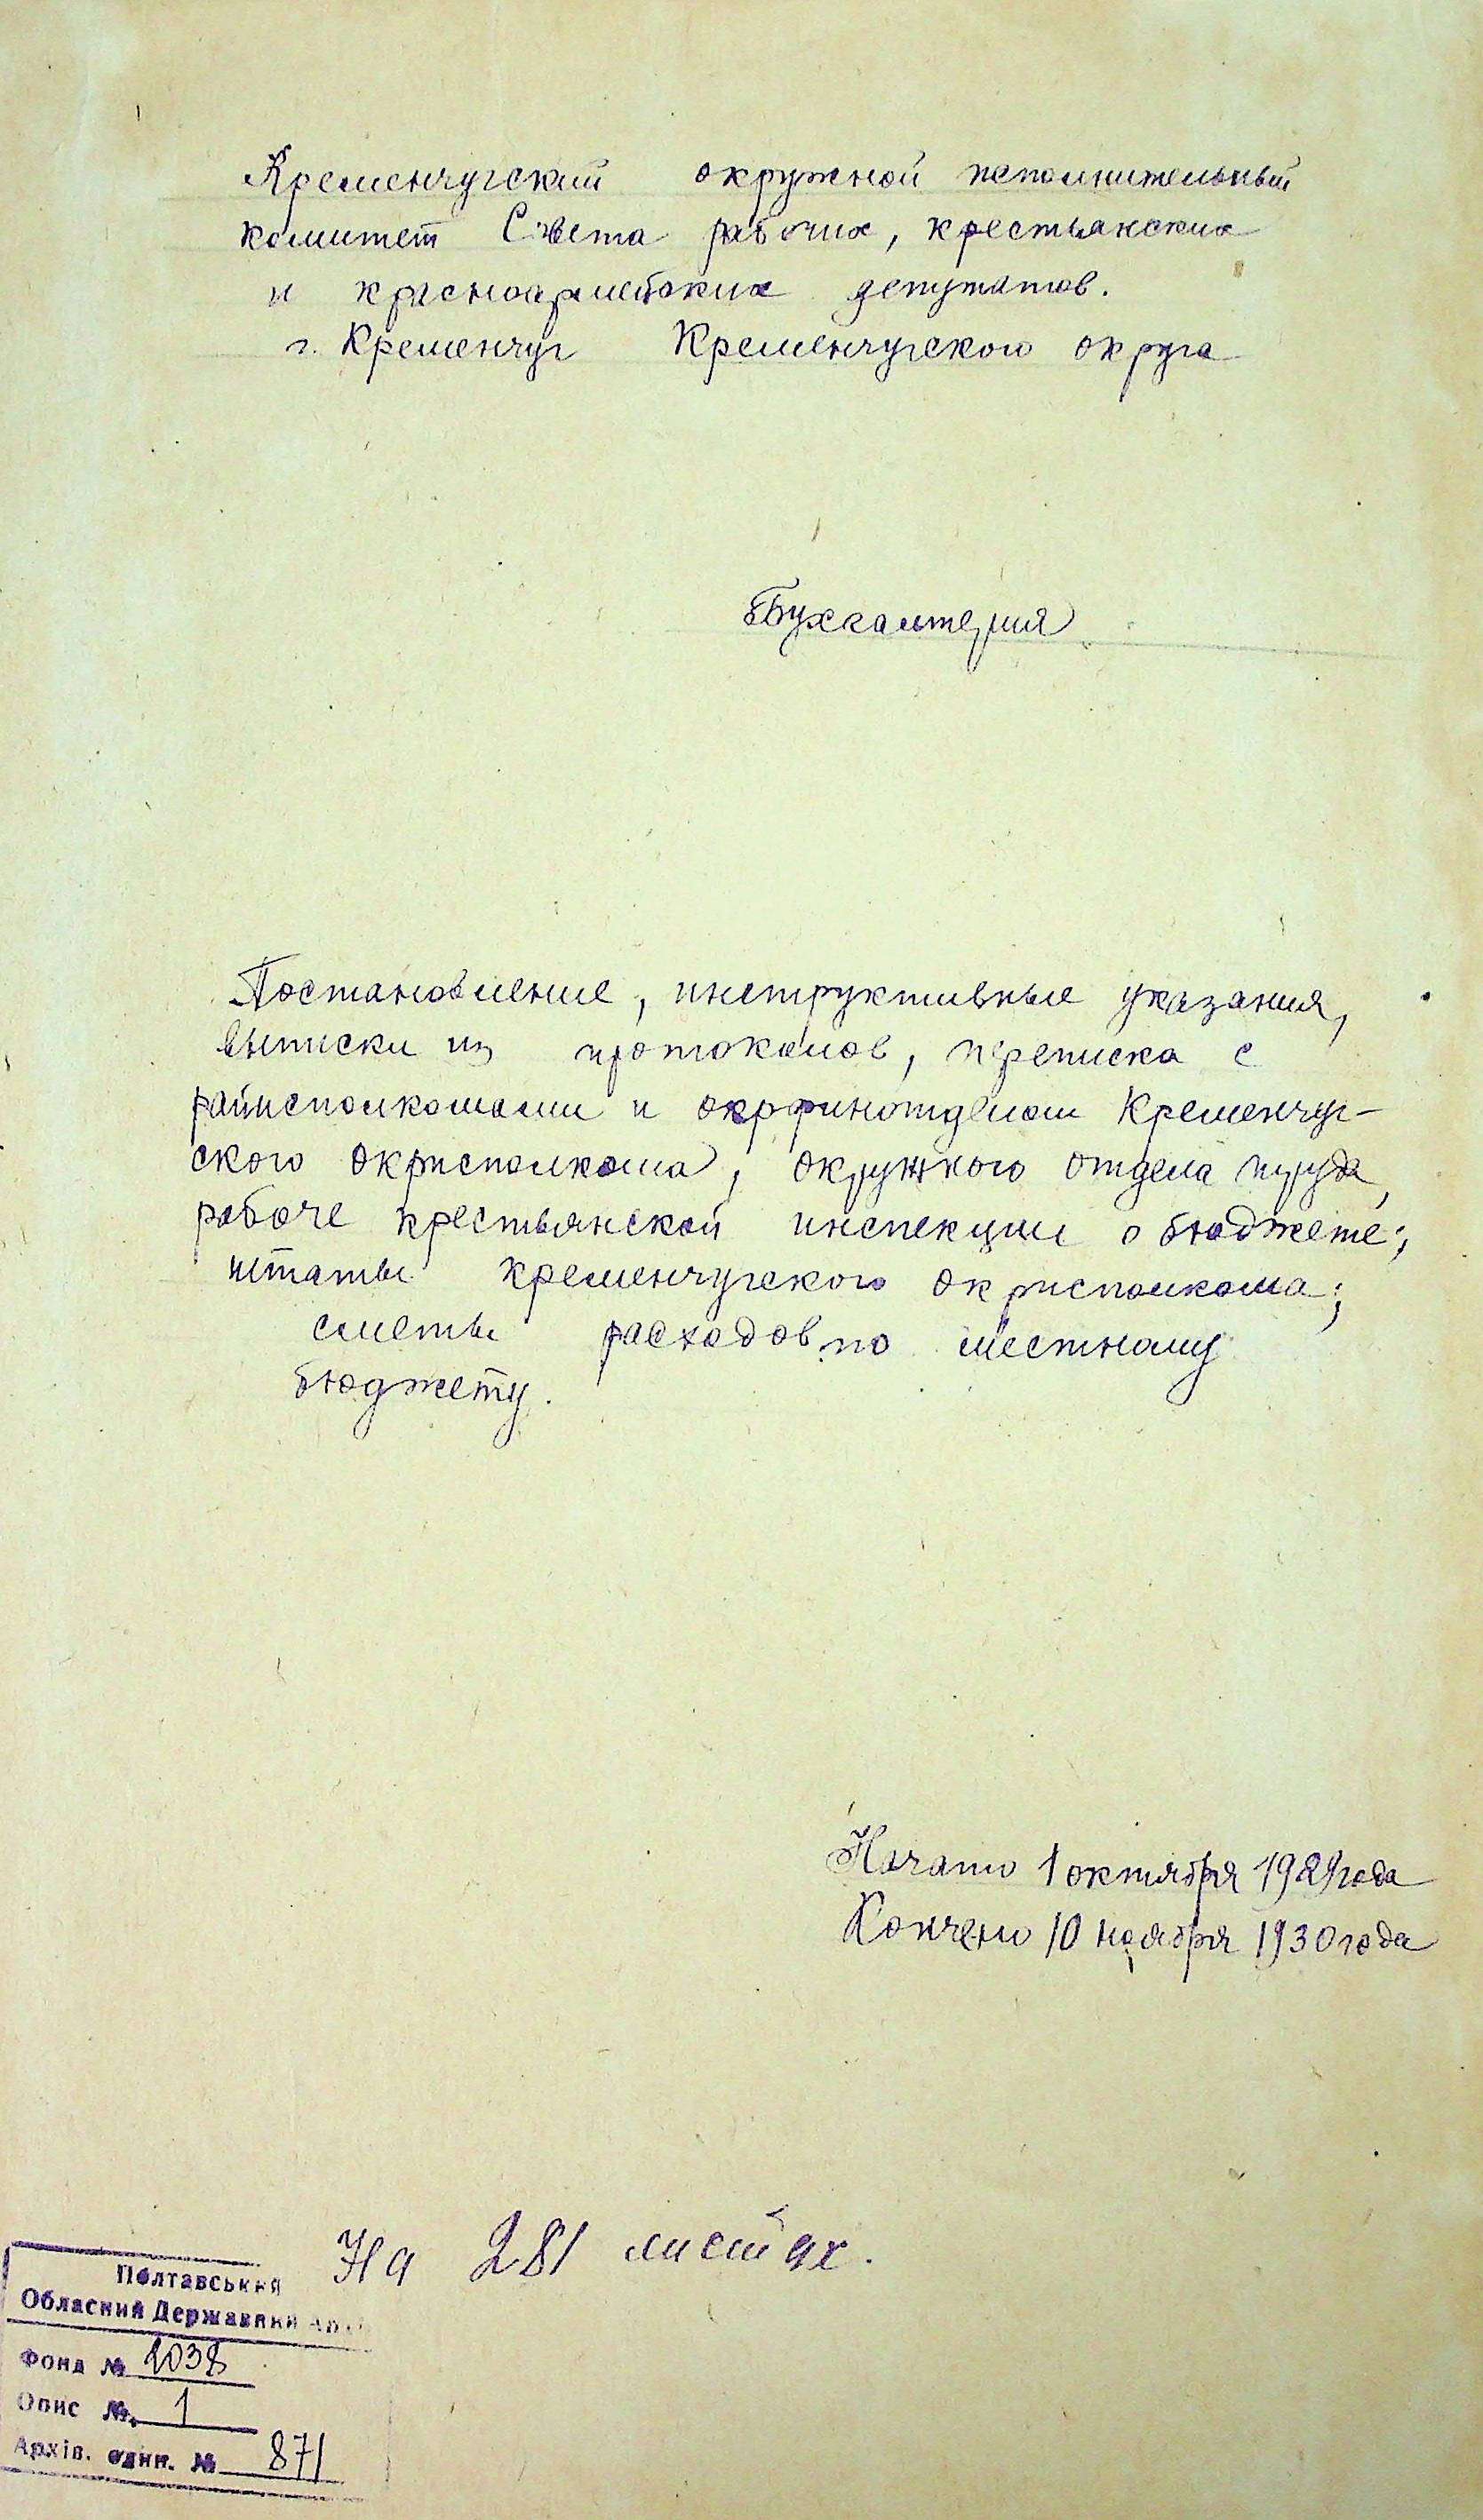 Кременчугский окружной исполнительный
комитет Совета рабочих, крестьянских
и красноармейских депутатов.
г. Кременчуг Кременчугского округа
Бухгалтерия
Постановление, инструктивные указания,
выписки из протоколов, переписка с
райисполкомами и окрфинотделом Кременчуг-
ского окрисполкома, окружного отдела труда,
рабоче крестьянской инспекции о бюджете;
штаты Кременчугского окрисполкома;
сметы расходов по местному
бюджету.
Начато 1 октября 1929 года
Кончено 10 ноября 1930 года
На 281 листах.
Полтавський
Обласний Державний
Фонд № 1038
Опис № 1
Архів. один. № 871